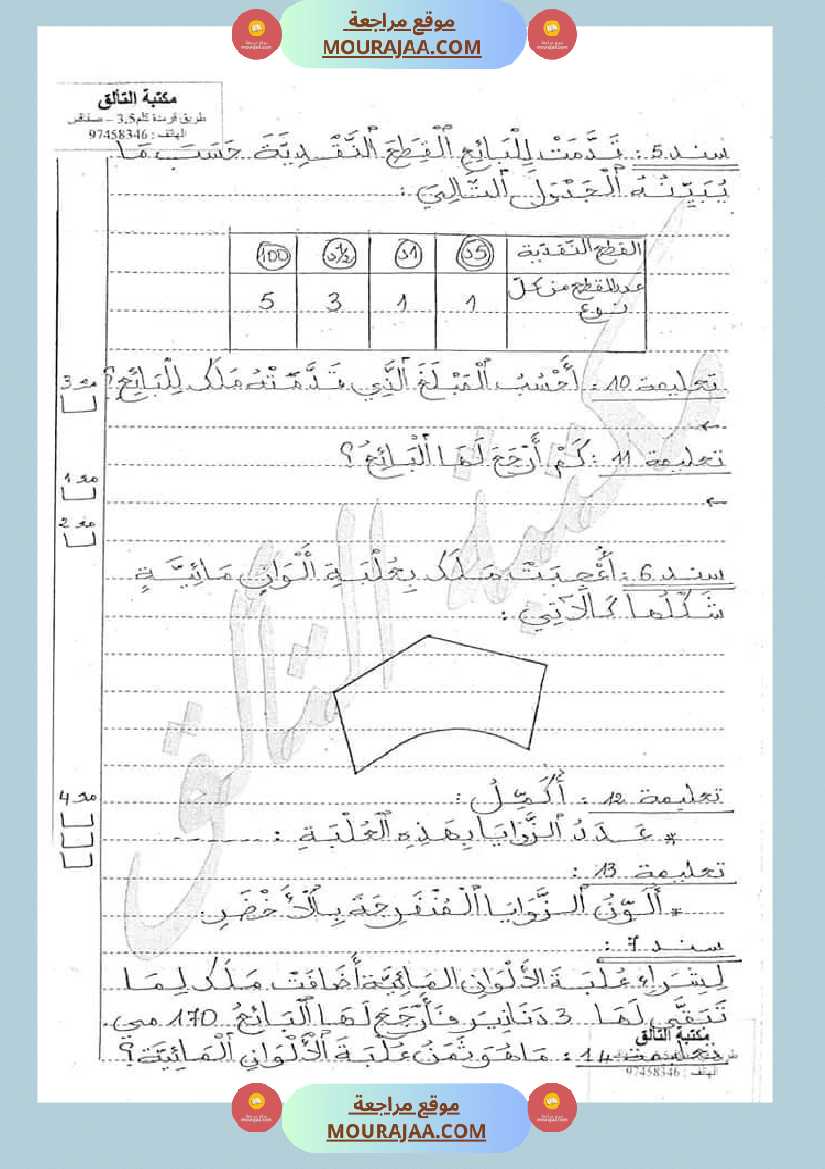 موقع مراجعة
MOURAJAA.COM
مكتبة التألق
طريق قرمدة كلم3,5 – صفاقس
الهاتف : 97458346
سند 5 : قَدَّمَتْ لِلْبَائِعِ ٱلْقِطَعَ ٱلنَّقْدِيَّةَ حَسَبَ مَا
يُبَيِّنُهُ ٱلْجَدْوَلُ ٱلتَّالِي :
القطع النقدية د5 د1 د½ 100
عدد القطع من كل نوع 1 1 3 5
تعليمة 10 : أَحْسُبُ ٱلْمَبْلَغَ ٱلَّذِي قَدَّمَتْهُ مَلَاك لِلْبَائِعِ؟
مع 3
←
تعليمة 11 : كَمْ أَرْجَعَ لَهَا ٱلْبَائِعُ؟
مع 1
←
مع 2
سند 6 : أُعْجِبَتْ مَلَاك بِعُلْبَةِ أَلْوَانٍ مَائِيَّةٍ
شَكْلُهَا كَالآتِي :
تعليمة 12 : أُكَمِّلُ :
مع 4
* عَدَدُ ٱلزَّوَايَا بِهَذِهِ ٱلْعُلْبَةِ : --------
تعليمة 13 :
* أُلَوِّنُ ٱلزَّوَايَا ٱلْمُنْفَرِجَةَ بِٱلْأَخْضَرِ.
سند 7 :
لِشِرَاءِ عُلْبَةَ الأَلْوَانِ المَائِيَّةِ أَضَافَتْ مَلَاك لِمَا
تَبَقَّى لَهَا 3 دَنَانِيرَ فَأَرْجَعَ لَهَا ٱلْبَائِعُ 170 مي.
تعليمة 14 : مَا هُوَ ثَمَنُ عُلْبَةَ ٱلْأَلْوَانِ ٱلْمَائِيَّةِ؟
مكتبة التألق
97458346
موقع مراجعة
MOURAJAA.COM